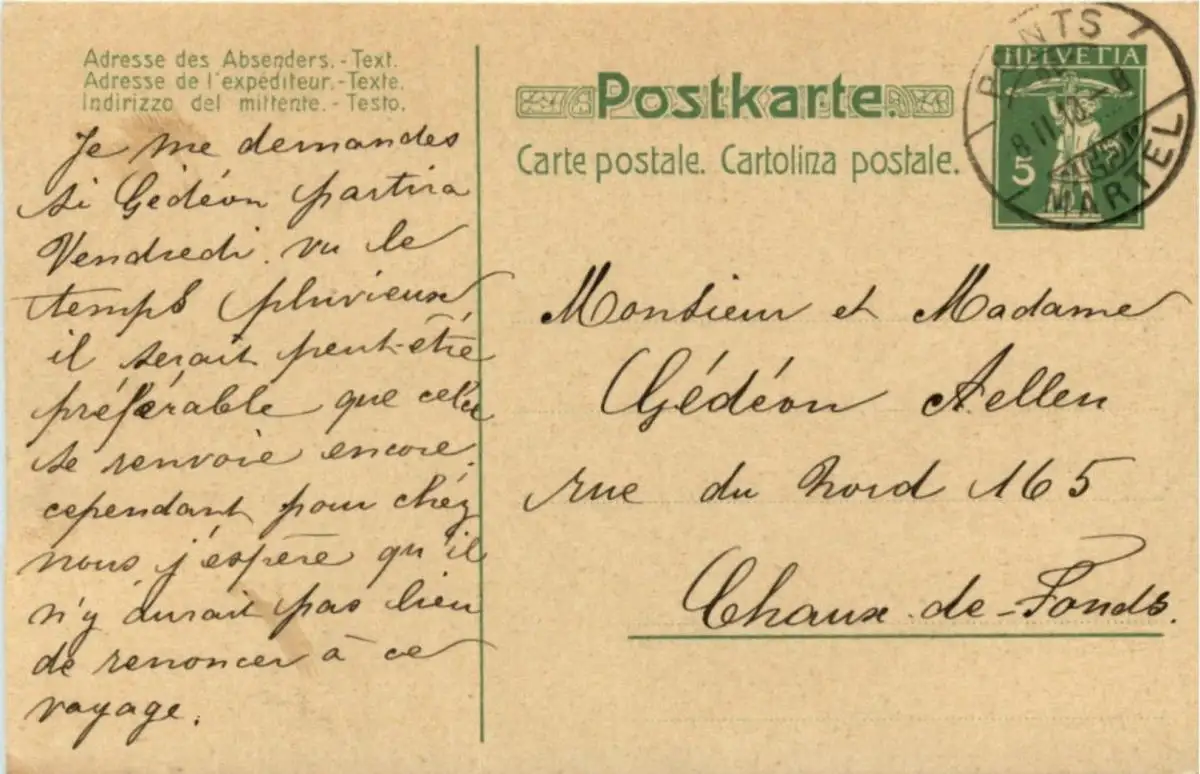 Adresse des Absenders.-Text.
Adresse de l'expéditeur.-Texte.
Indirizzo del mittente.-Testo.
Je me demandes
si Gédéon partira
Vendredi. vu le
temps pluvieux,
il serait peut-être
préférable que cela
se renvoie encore.
cependant pour chéz
nous j'espère qu'il
n'y aurait pas lieu
de renoncer à ce
voyage.
Postkarte.
Carte postale. Cartolina postale.
HELVETIA
5
PONTS
MARTEL
Monsieur et Madame
Gédéon Aellen
rue du Nord 165
Chaux-de-Fonds.